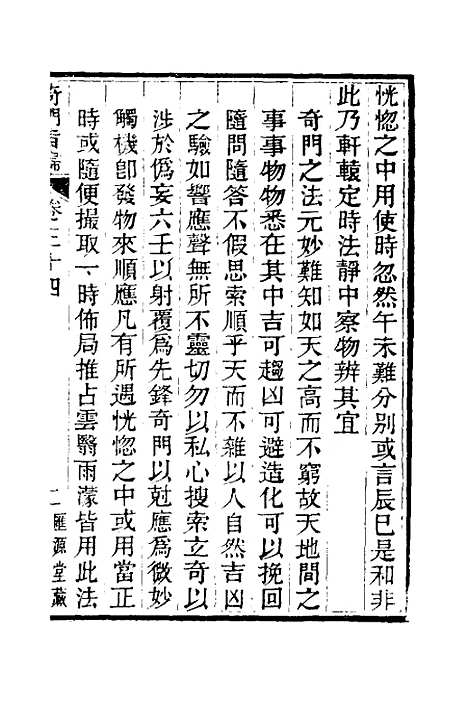 恍惚之中用使時忽然午未難分別或言辰巳是和非
此乃軒轅定時法靜中察物辨其宜
奇門之法元妙難知如天之高而不窮故天地間之
事事物物悉在其中吉可趨凶可避造化可以挽回
隨問隨答不假思索順乎天而不雜以人自然吉凶
之驗如響應聲無所不靈切勿以私心搜索立奇以
涉於僞妄六壬以射覆爲先鋒奇門以尅應爲微妙
觸機卽發物來順應凡有所遇恍惚之中或用當正
時或隨便撮取一時佈局推占雲翳雨濛皆用此法
奇門旨歸 卷二十四 二 匯源堂藏